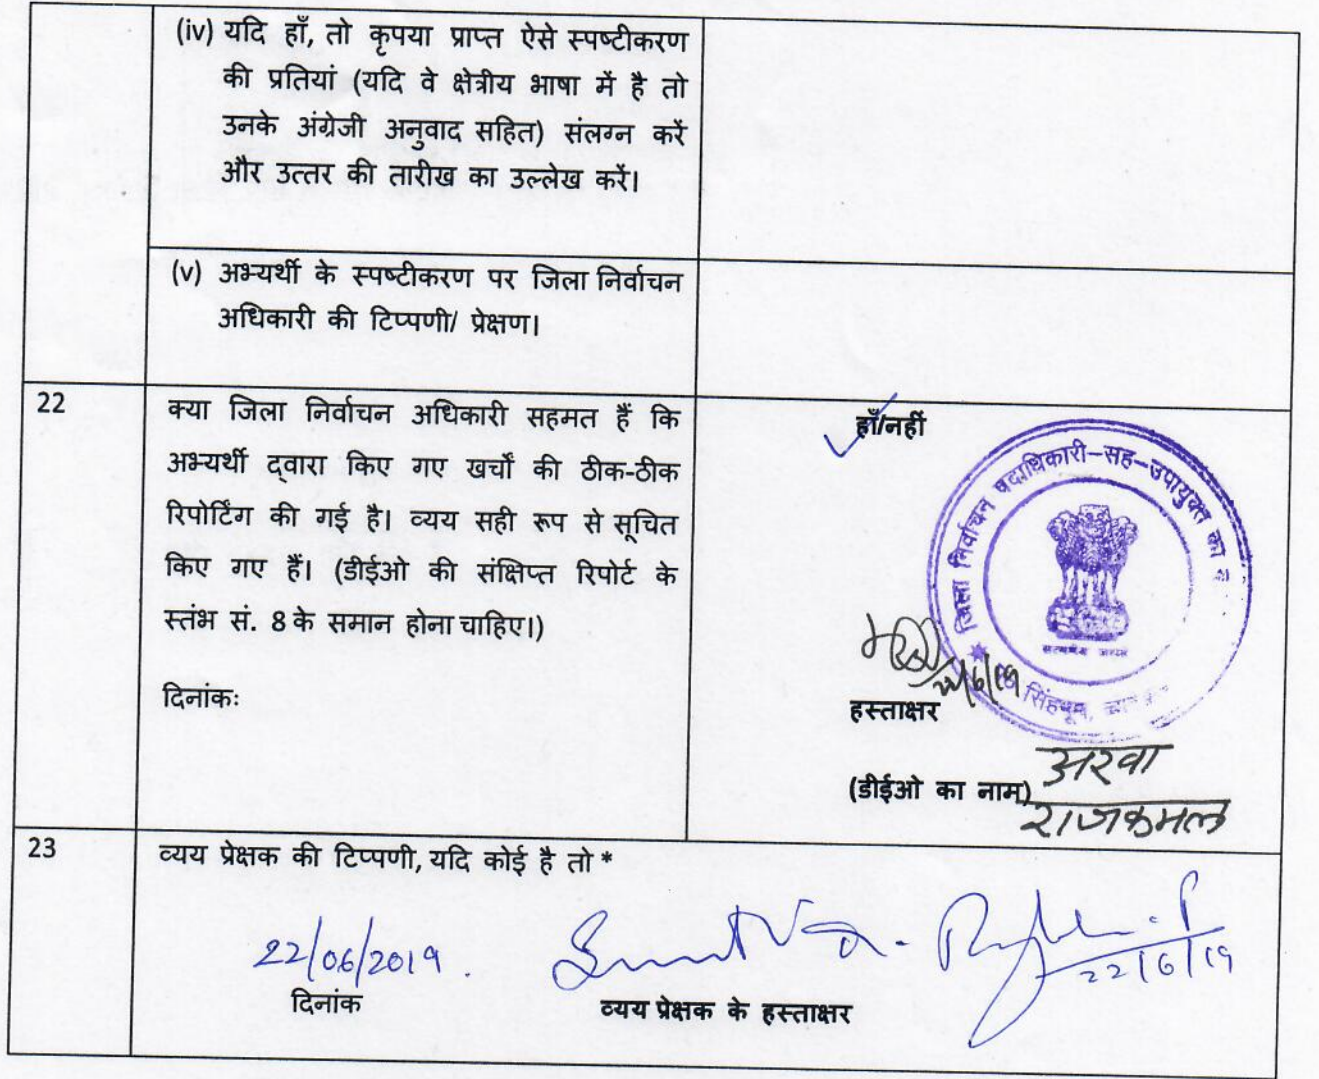 (iv) यदि हाँ, तो कृपया प्राप्त ऐसे स्पष्टीकरण
की प्रतियां (यदि वे क्षेत्रीय भाषा में है तो
उनके अंग्रेजी अनुवाद सहित) संलग्न करें
और उत्तर की तारीख का उल्लेख करें।
(v) अभ्यर्थी के स्पष्टीकरण पर जिला निर्वाचन
अधिकारी की टिप्पणी/ प्रेक्षण।
22
क्या जिला निर्वाचन अधिकारी सहमत हैं कि
अभ्यर्थी द्वारा किए गए खर्चों की ठीक-ठीक
रिपोर्टिंग की गई है। व्यय सही रूप से सूचित
किए गए हैं। (डीईओ की संक्षिप्त रिपोर्ट के
स्तंभ सं. 8 के समान होना चाहिए।)
दिनांकः
हाँ/नहीं
जिला निर्वाचन पदाधिकारी-सह-उपायुक्त
सिंहभूम,
22/6/19
हस्ताक्षर
(डीईओ का नाम)
अरवा
राजकमल
23
व्यय प्रेक्षक की टिप्पणी, यदि कोई है तो *
22/06/2019.
22/6/19
दिनांक
व्यय प्रेक्षक के हस्ताक्षर